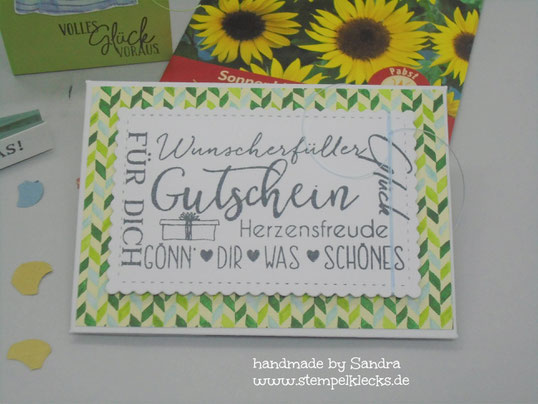 VOLLES
Glück
VORAUS
Pabst
AS!
FÜR DICH
Wunscherfüller
Glück
Gutschein
Herzensfreude
GÖNN' ♥ DIR ♥ WAS ♥ SCHÖNES
handmade by Sandra
www.stempelklecks.de